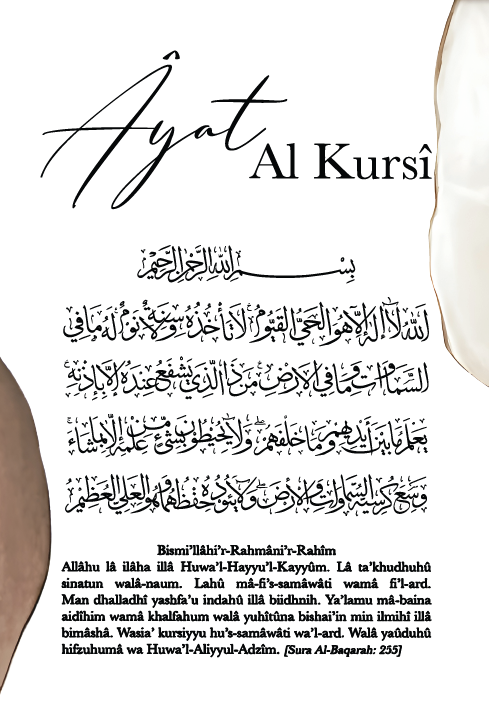 Âyat
Al Kursî
بِسْمِ اللهِ الرَّحْمٰنِ الرَّحِيْمِ
اَللهُ لَا اِلٰهَ اِلَّا هُوَ الْحَيُّ الْقَيُّوْمُ لَا تَأْخُذُهُ سِنَةٌ وَلَا نَوْمٌ لَهُ مَا فِي
السَّمَاوَاتِ وَمَا فِي الْاَرْضِ مَنْ ذَا الَّذِيْ يَشْفَعُ عِنْدَهُ اِلَّا بِاِذْنِهِ
يَعْلَمُ مَا بَيْنَ اَيْدِيْهِمْ وَمَا خَلْفَهُمْ وَلَا يُحِيْطُوْنَ بِشَيْءٍ مِنْ عِلْمِهِ اِلَّا بِمَا شَاءَ
وَسِعَ كُرْسِيُّهُ السَّمَاوَاتِ وَالْاَرْضَ وَلَا يَئُوْدُهُ حِفْظُهُمَا وَهُوَ الْعَلِيُّ الْعَظِيْمُ
Bismi'llâhi'r-Rahmâni'r-Rahîm
Allâhu lâ ilâha illâ Huwa'l-Hayyu'l-Kayyûm. Lâ ta'khudhuhû
sinatun walâ-naum. Lahû mâ-fi's-samâwâti wamâ fi'l-ard.
Man dhalladhî yashfa'u indahû illâ biidhnih. Ya'lamu mâ-baina
aidîhim wamâ khalfahum walâ yuhîtûna bishai'in min ilmihî illâ
bimâshâ. Wasia' kursiyyu hu's-samâwâti wa'l-ard. Walâ yaûduhû
hifzuhumâ wa Huwa'l-Aliyyul-Adzîm. [Sura Al-Baqarah: 255]